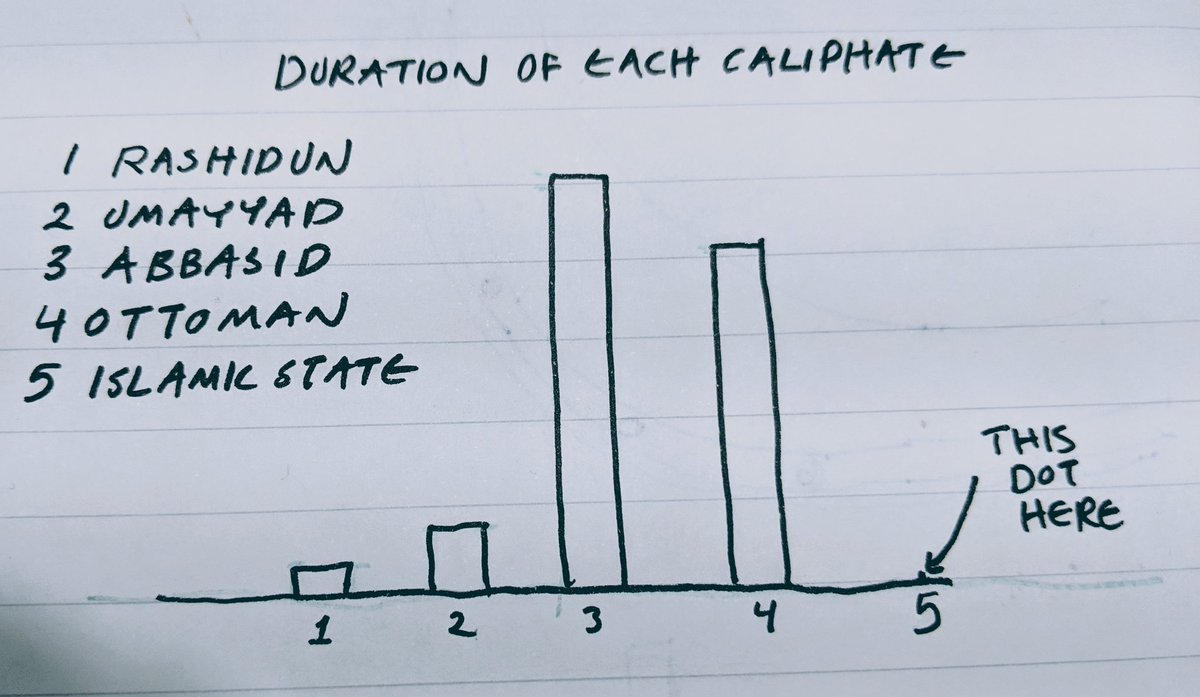 DURATION OF EACH CALIPHATE
1 RASHIDUN
2 UMAYYAD
3 ABBASID
4 OTTOMAN
5 ISLAMIC STATE
THIS
DOT
HERE
1 2 3 4 5